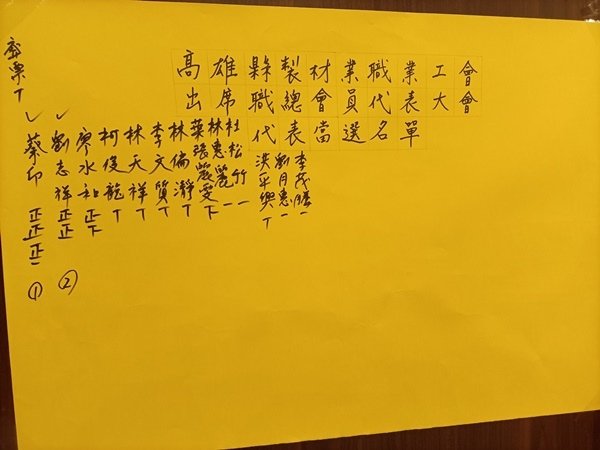 高雄縣製材業職業工會
出席職總會員代表大會
代表當選名單
廢票 丅
✓ 蔡印 正正正一 ①
✓ 劉志祥 正正 ②
廖水和 正下
柯俊龍 丅
林天祥 丅
李文質 丅
林倫瀞 丅
葉張麗雯 下
林惠麗 一
杜松竹 一
洪平興 丅
劉月惠 一
李茂 一